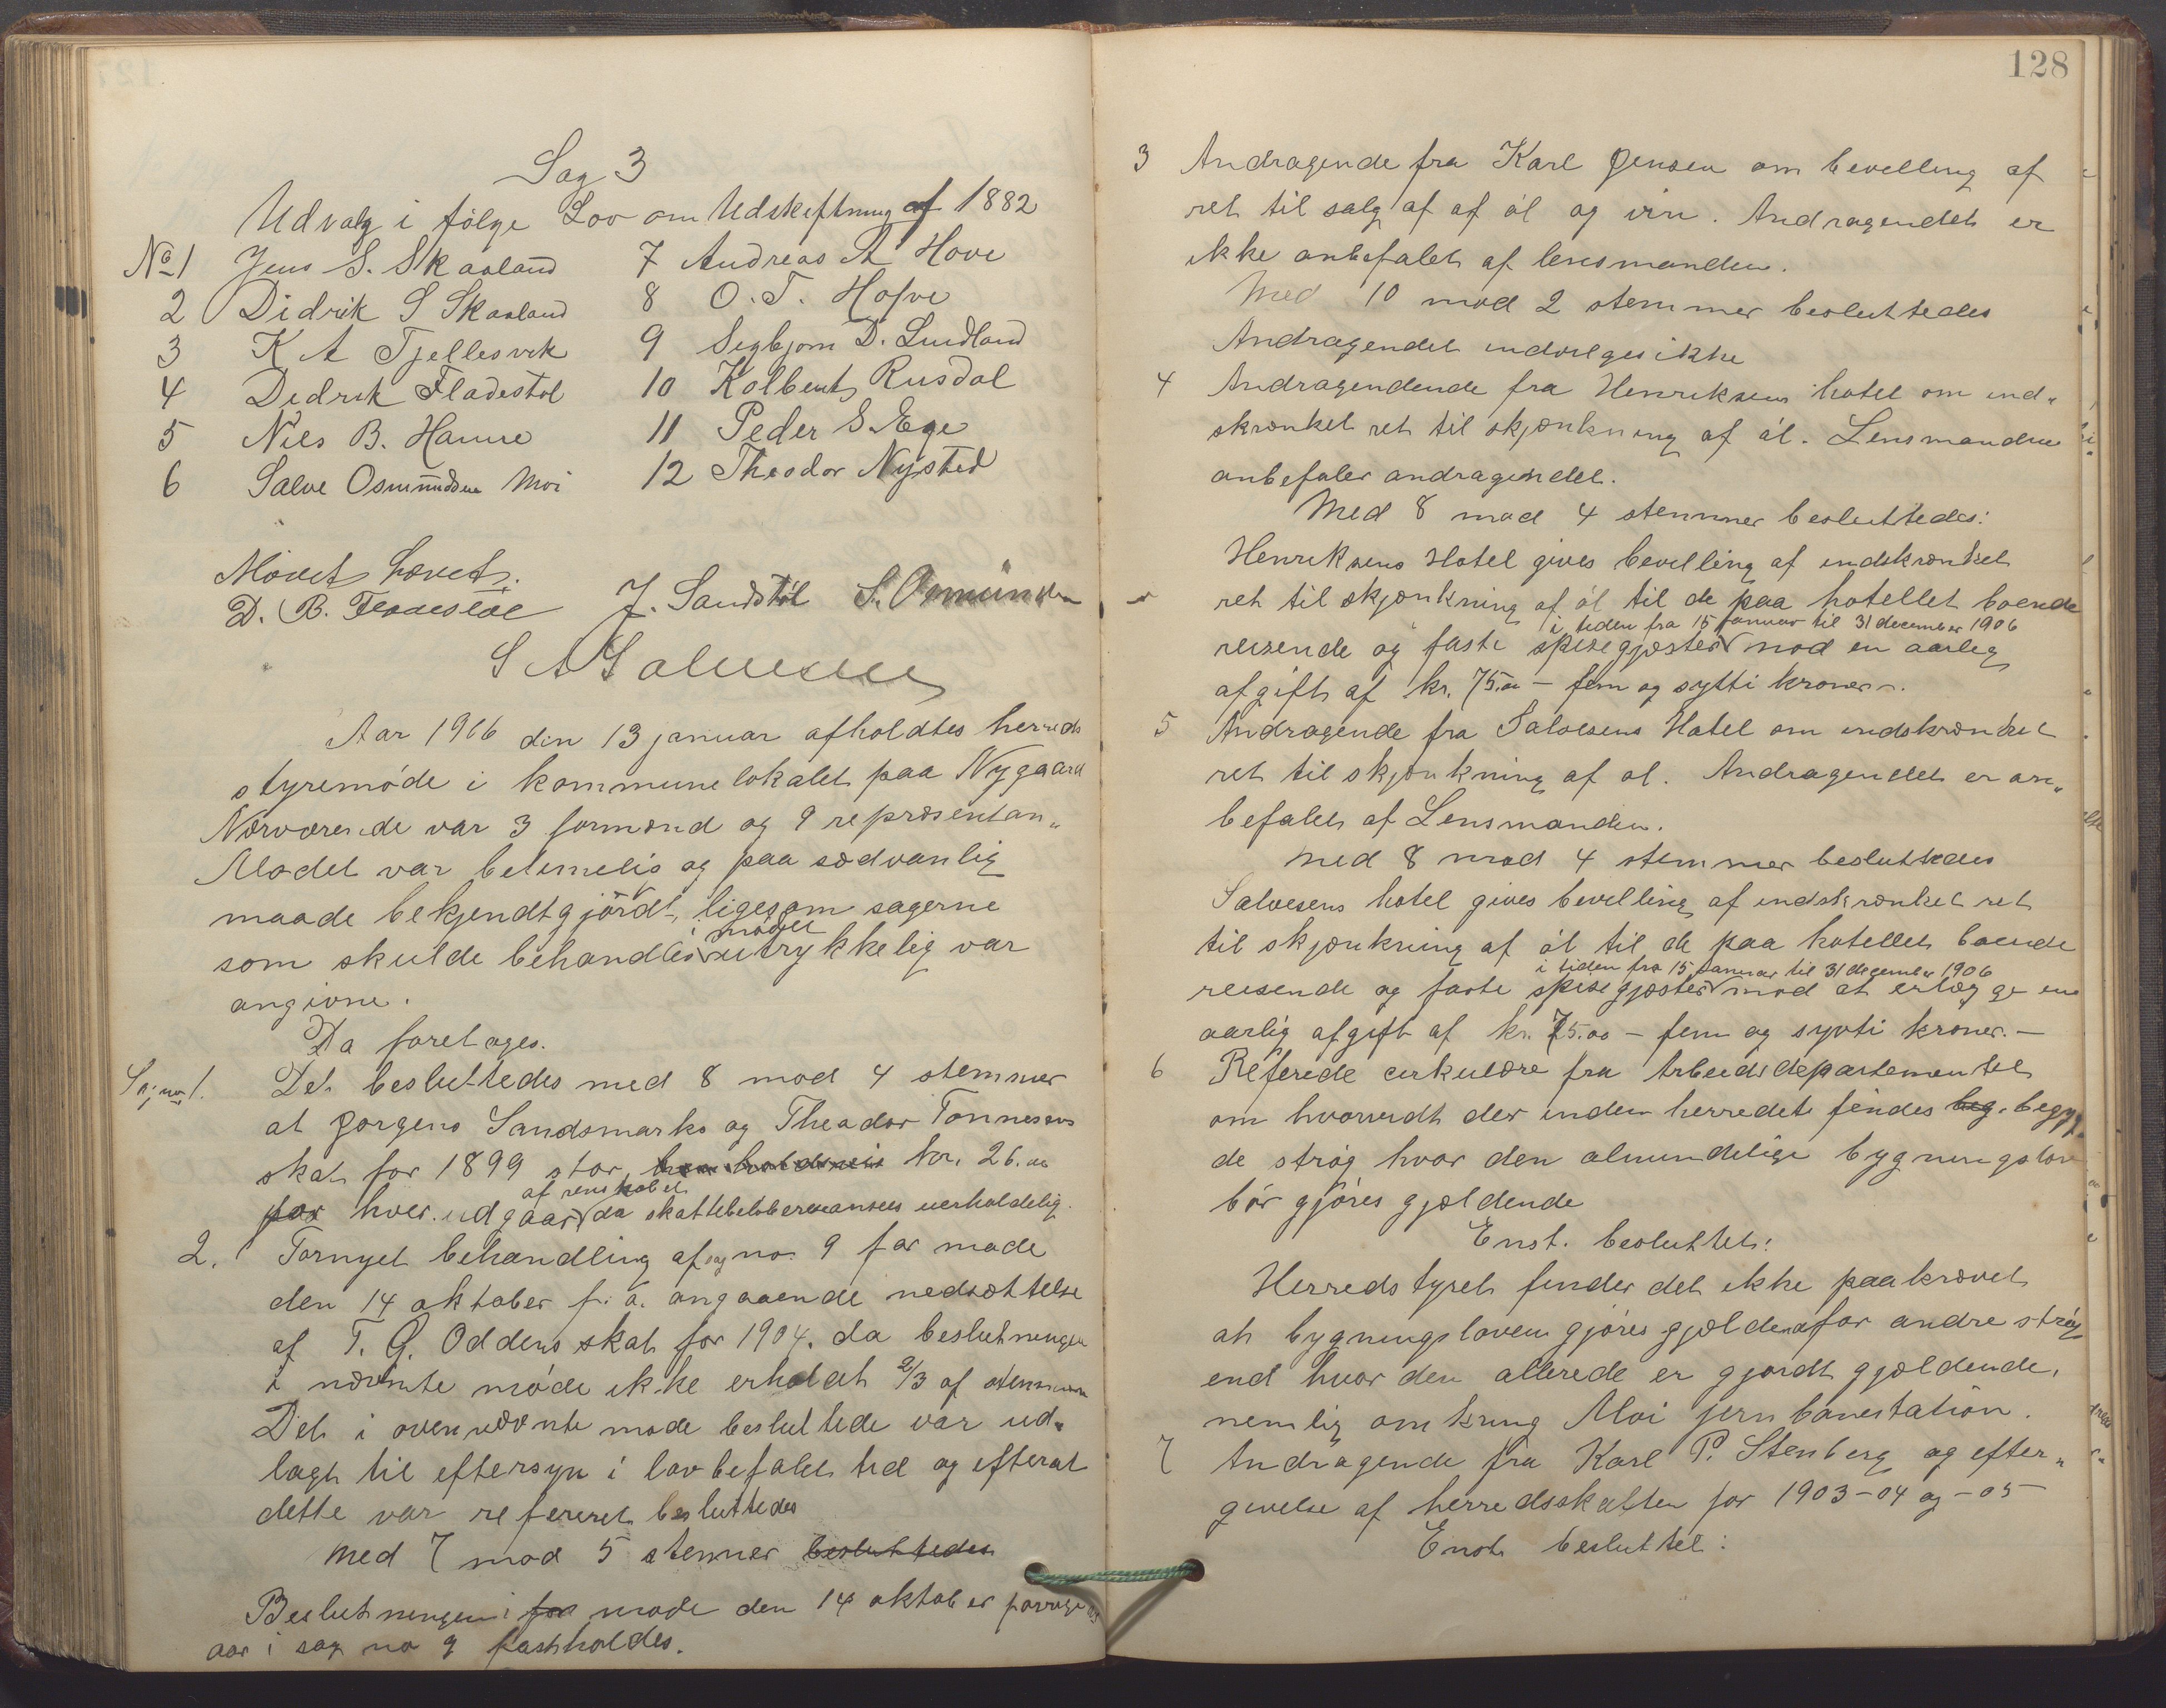 Sag 3
Udvalg i følge Lov om Udskiftning af 1882
No 1 Jens S. Skaaland
2 Didrik S Skaaland
3 K A Tjellesvik
4 Didrik Fladestøl
5 Nils B. Hamre
6 Salve Osmundsen Moi
7 Andreas A Hove
8 O. T. Hofve
9 Segbjørn D. Lindland
10 Kolbent Rusdal
11 Peder S. Ege
12 Theodor Nysted
Mødet hævet.
D. B. Fladestøl J. Sandstøl S. Osmundsen
S A Salvesen
Aar 1906 den 13 januar afholdtes herreds
styremøde i kommunelokalet paa Nygaard
Nærværende var 3 formænd og 9 repræsentan„
Mødet var betimelig og paa sædvanlig
maade bekjendtgjordt, ligesom sagerne
i mødet
som skulde behandles utrykkelig var
angivne.
Da foretages.
Sag no 1. Det besluttedes med 8 mod 4 stemmer
at Jørgens Sandsmarks og Theodor Tønnesens
skat for 1899 stor, kr. 26.00
af renskabet
for hver. udgaar da skattebeløbene ansees uerholdelig.
2. Fornyet behandling af sag no 9 for møde
den 14 oktober f. a. angaaende nedsættelse
af T. G. Oddens skat for 1904. da beslutningen
i nævnte møde ikke erholdt 2/3 af stemmerne
Det i ovennævnte møde besluttede var ud„
lagt til eftersyn i lovbefalet tid og efterat
dette var refereret besluttedes
med 7 mod 5 stemmer besluttedes
Beslutningen i for møde den 14 oktober forrige
aar i sag no 9 fastholdes.
128
3 Andragende fra Karl Jensen om bevilling af
ret til salg af af øl og vin. Andragendet er
ikke anbefalet af lensmanden.
Med 10 mod 2 stemmer besluttedes
Andragendet indvilges ikke
4 Andragendende fra Henriksens hotel om ind„
skrænket ret til skjænkning af øl. Lensmanden
anbefaler andragendet.
Med 8 mod 4 stemmer besluttedes:
Henriksens Hotel gives bevilling af indskrænket
ret til skjænkning af øl til de paa hotellet boende
i tiden fra 15 januar til 31 december 1906
reisende og faste spisegjæster mod en aarlig
afgift af kr. 75.00 – fem og sytti kroner –.
5 Andragende fra Salvesens Hotel om indskrænket
ret til skjænkning af øl. Andragendet er an„
befalet af Lensmanden.
Med 8 mod 4 stemmer besluttedes
Salvesens hotel gives bevilling af indskrænket ret
til skjænkning af øl til de paa hotellet boende
i tiden fra 15 januar til 31 december 1906
reisende og faste spisegjæster mod at erlægge en
aarlig afgift af kr. 75.00 – fem og sytti kroner. –
6 Referede cirkulære fra Arbeidsdepartementet
om hvorvidt der inden herredet findes beg. bebyg„
de strøg hvor den almindelige bygningslov
bør gjøres gjældende
Enst. besluttet:
Herredstyret finder det ikke paakrævet
at bygningsloven gjøres gjældende for andre strøg
end hvor den allerede er gjordt gjældende,
nemlig omkring Moi jernbanestation.
7 Andragende fra Karl P. Stenberg og efter„
givelse af herredsskatten for 1903–04 og –05
Enst. besluttet: